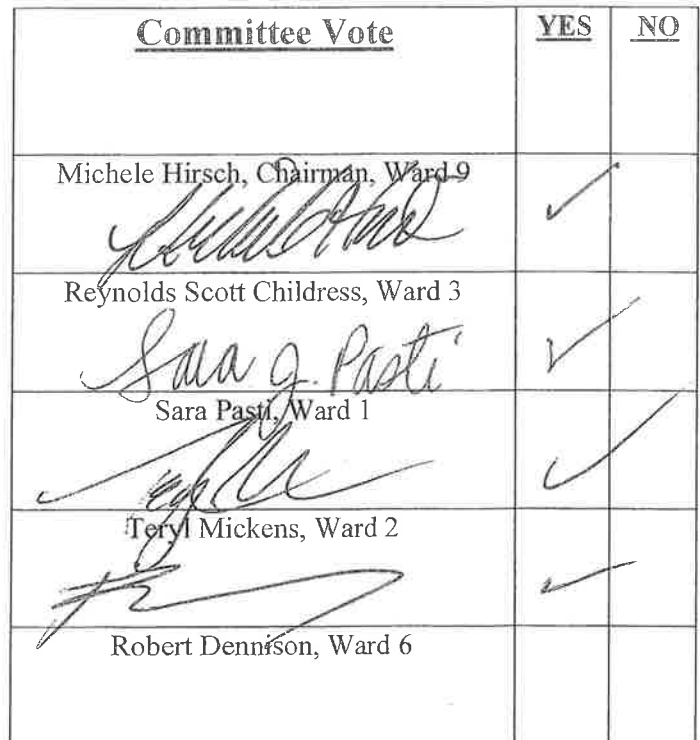 Committee Vote YES NO
Michele Hirsch, Chairman, Ward 9
Reynolds Scott Childress, Ward 3
Sara J. Pasti
Sara Pasti, Ward 1
Teryl Mickens, Ward 2
Robert Dennison, Ward 6